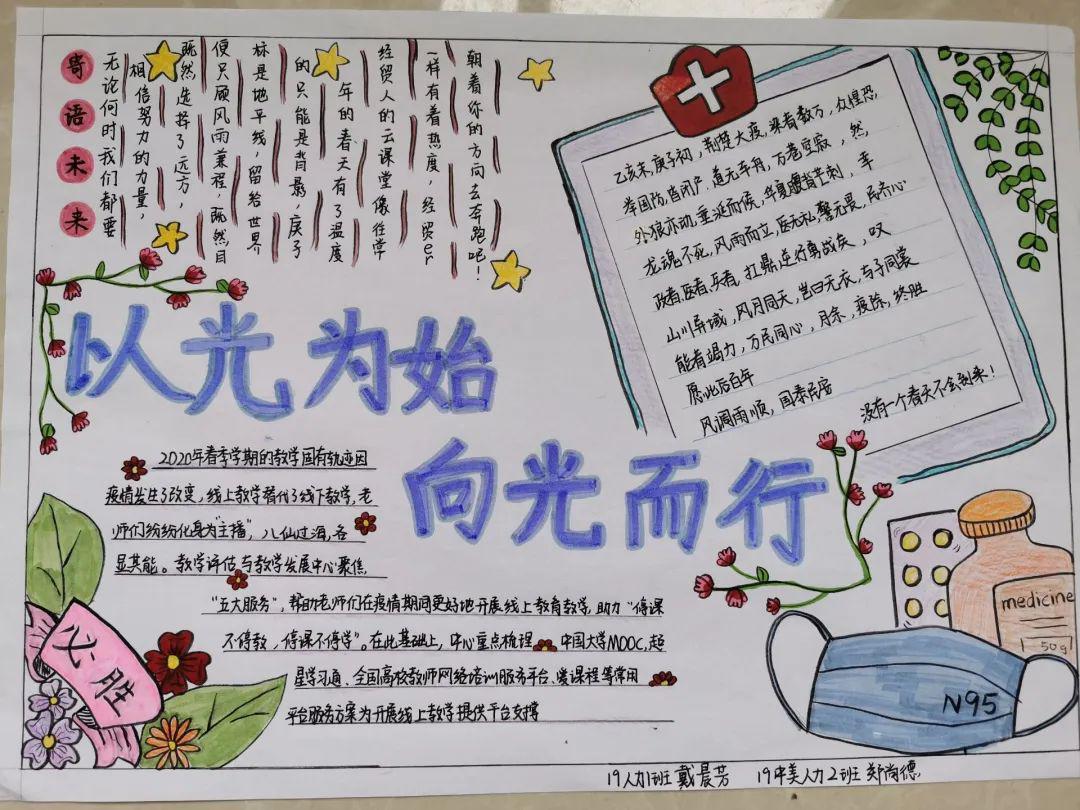 寄语未来
无论何时我们都要
相信努力的力量,
既然选择了远方,
便只顾风雨兼程,既然目
标是地平线,留给世界
的只能是背影,庚子
年的春天有了温度
经贸人的云课堂像往常
一样有着热度,经贸er
朝着你的方向去奔跑吧!
乙亥末,庚子初,荆楚大疫,染者数万,众惶恐,
举国防,皆闭户,道无车舟,万巷空寂,然,
外狼亦动,垂涎而候,华夏腹背芒刺,幸
龙魂不死,风雨而立,医无私,警无畏,民齐心
政者,医者,兵者,扛鼎逆行勇战矣,叹
山川异域,风月同天,岂曰无衣,与子同裳
能者竭力,万民同心,月余,疫除,终胜
愿此后百年
风调雨顺,国泰民安
没有一个春天不会到来!
以光为始
向光而行
2020年春季学期的教学固有轨迹因
疫情发生了改变,线上教学替代了线下教学,老
师们纷纷化身为"主播",八仙过海,各
显其能。教学评估与教学发展中心聚焦
"五大服务",帮助老师们在疫情期间更好地开展线上教育教学,助力"停课
不停教,停课不停学"。在此基础上,中心重点梳理中国大学MOOC,超
星学习通、全国高校教师网络培训服务平台、爱课程等常用
平台服务方案为开展线上教学提供平台支撑
必胜
medicine
50g
N95
19人力1班 戴晨芳 19中美人力2班 郑尚德